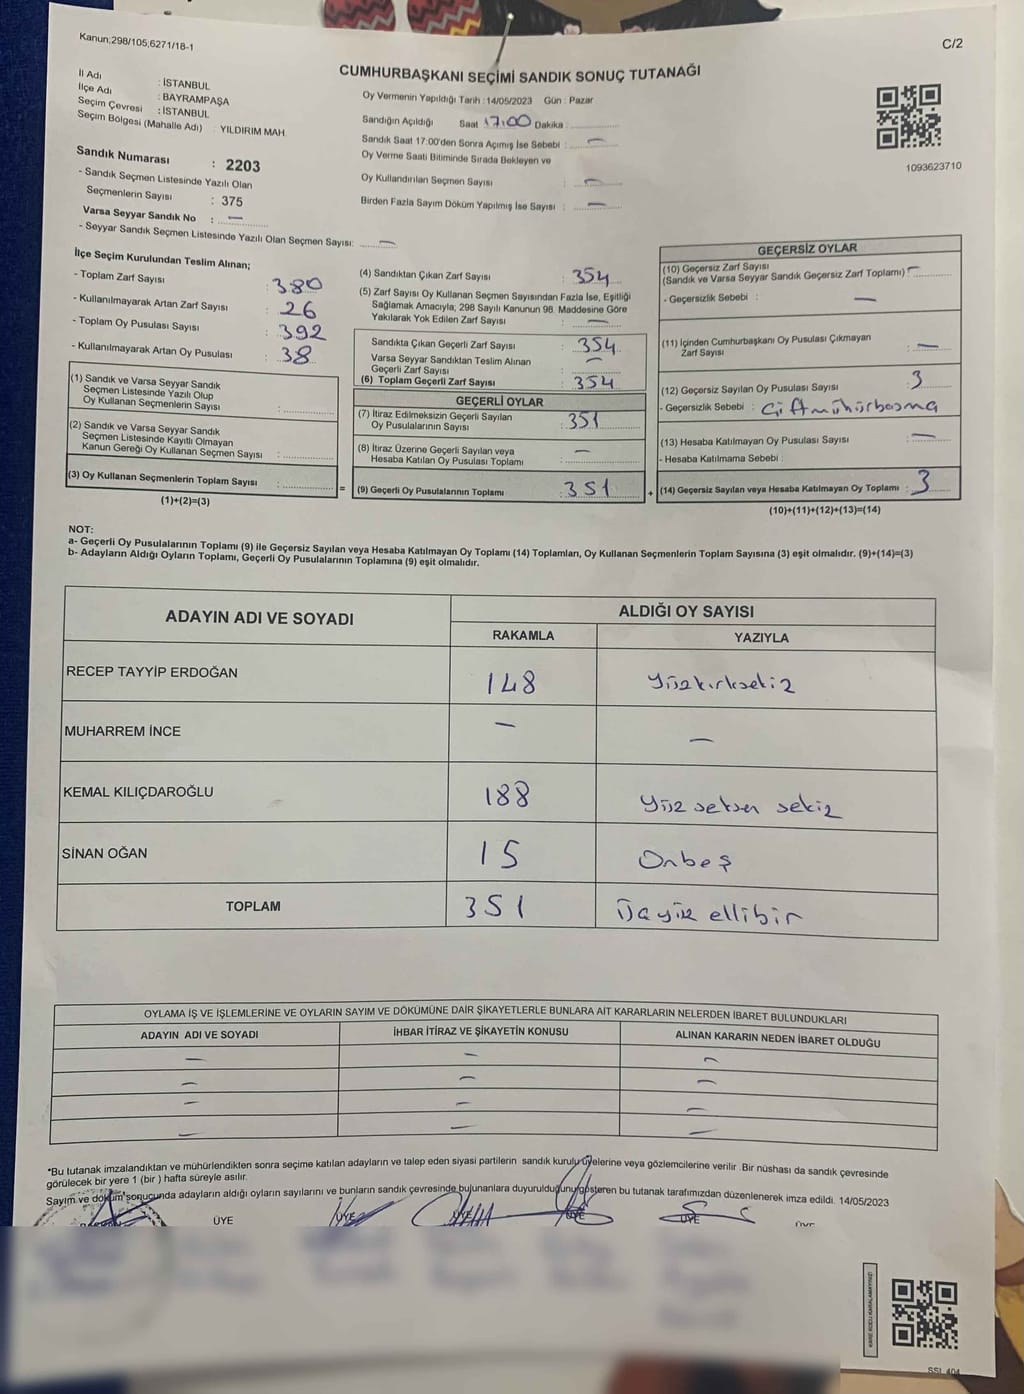 Kanun;298/105;6271/18-1
C/2
CUMHURBAŞKANI SEÇİMİ SANDIK SONUÇ TUTANAĞI
İl Adı : İSTANBUL
İlçe Adı : BAYRAMPAŞA
Seçim Çevresi : İSTANBUL
Seçim Bölgesi (Mahalle Adı) : YILDIRIM MAH.
Sandık Numarası : 2203
- Sandık Seçmen Listesinde Yazılı Olan
Seçmenlerin Sayısı : 375
Varsa Seyyar Sandık No : —
- Seyyar Sandık Seçmen Listesinde Yazılı Olan Seçmen Sayısı: —
Oy Vermenin Yapıldığı Tarih :14/05/2023 Gün : Pazar
Sandığın Açıldığı Saat 17:00 Dakika :
Sandık Saat 17:00'den Sonra Açımış İse Sebebi : —
Oy Verme Saati Bitiminde Sırada Bekleyen ve
Oy Kullandırılan Seçmen Sayısı : —
Birden Fazla Sayım Döküm Yapılmış İse Sayısı : —
1093623710
İlçe Seçim Kurulundan Teslim Alınan;
- Toplam Zarf Sayısı : 380
- Kullanılmayarak Artan Zarf Sayısı : 26
- Toplam Oy Pusulası Sayısı : 392
- Kullanılmayarak Artan Oy Pusulası : 38
(1) Sandık ve Varsa Seyyar Sandık
Seçmen Listesinde Yazılı Olup
Oy Kullanan Seçmenlerin Sayısı :
(2) Sandık ve Varsa Seyyar Sandık
Seçmen Listesinde Kayıtlı Olmayan
Kanun Gereği Oy Kullanan Seçmen Sayısı :
(3) Oy Kullanan Seçmenlerin Toplam Sayısı :
(1)+(2)=(3)
(4) Sandıktan Çıkan Zarf Sayısı : 354
(5) Zarf Sayısı Oy Kullanan Seçmen Sayısından Fazla İse, Eşitliği
Sağlamak Amacıyla; 298 Sayılı Kanunun 98. Maddesine Göre
Yakılarak Yok Edilen Zarf Sayısı : —
Sandıkta Çıkan Geçerli Zarf Sayısı : 354
Varsa Seyyar Sandıktan Teslim Alınan
Geçerli Zarf Sayısı : —
(6) Toplam Geçerli Zarf Sayısı : 354
GEÇERLİ OYLAR
(7) İtiraz Edilmeksizin Geçerli Sayılan
Oy Pusulalarının Sayısı : 351
(8) İtiraz Üzerine Geçerli Sayılan veya
Hesaba Katılan Oy Pusulası Toplamı : —
= (9) Geçerli Oy Pusulalarının Toplamı : 351 +
GEÇERSİZ OYLAR
(10) Geçersiz Zarf Sayısı
(Sandık ve Varsa Seyyar Sandık Geçersiz Zarf Toplamı) : —
- Geçersizlik Sebebi : —
(11) İçinden Cumhurbaşkanı Oy Pusulası Çıkmayan
Zarf Sayısı : —
(12) Geçersiz Sayılan Oy Pusulası Sayısı : 3
- Geçersizlik Sebebi : Çift mühür basma
(13) Hesaba Katılmayan Oy Pusulası Sayısı : —
- Hesaba Katılmama Sebebi :
(14) Geçersiz Sayılan veya Hesaba Katılmayan Oy Toplamı : 3
(10)+(11)+(12)+(13)=(14)
NOT:
a- Geçerli Oy Pusulalarının Toplamı (9) ile Geçersiz Sayılan veya Hesaba Katılmayan Oy Toplamı (14) Toplamları, Oy Kullanan Seçmenlerin Toplam Sayısına (3) eşit olmalıdır. (9)+(14)=(3)
b- Adayların Aldığı Oyların Toplamı, Geçerli Oy Pusulalarının Toplamına (9) eşit olmalıdır.
ADAYIN ADI VE SOYADI ALDIĞI OY SAYISI
RAKAMLA YAZIYLA
RECEP TAYYİP ERDOĞAN 148 Yüzkırksekiz
MUHARREM İNCE — —
KEMAL KILIÇDAROĞLU 188 Yüz seksen sekiz
SİNAN OĞAN 15 Onbeş
TOPLAM 351 Üçyüz ellibir
OYLAMA İŞ VE İŞLEMLERİNE VE OYLARIN SAYIM VE DÖKÜMÜNE DAİR ŞİKAYETLERLE BUNLARA AİT KARARLARIN NELERDEN İBARET BULUNDUKLARI
ADAYIN ADI VE SOYADI İHBAR İTİRAZ VE ŞİKAYETİN KONUSU ALINAN KARARIN NEDEN İBARET OLDUĞU
— — —
— — —
— — —
— — —
*Bu tutanak imzalandıktan ve mühürlendikten sonra seçime katılan adayların ve talep eden siyasi partilerin sandık kurulu üyelerine veya gözlemcilerine verilir .Bir nüshası da sandık çevresinde
görülecek bir yere 1 (bir ) hafta süreyle asılır.
Sayım ve döküm sonucunda adayların aldığı oyların sayılarını ve bunların sandık çevresinde bulunanlara duyurulduğunu gösteren bu tutanak tarafımızdan düzenlenerek imza edildi. 14/05/2023
ÜYE ÜYE ÜYE ÜYE ÜYE
KARE KODU KARALAMAYINIZ!
SSL 404